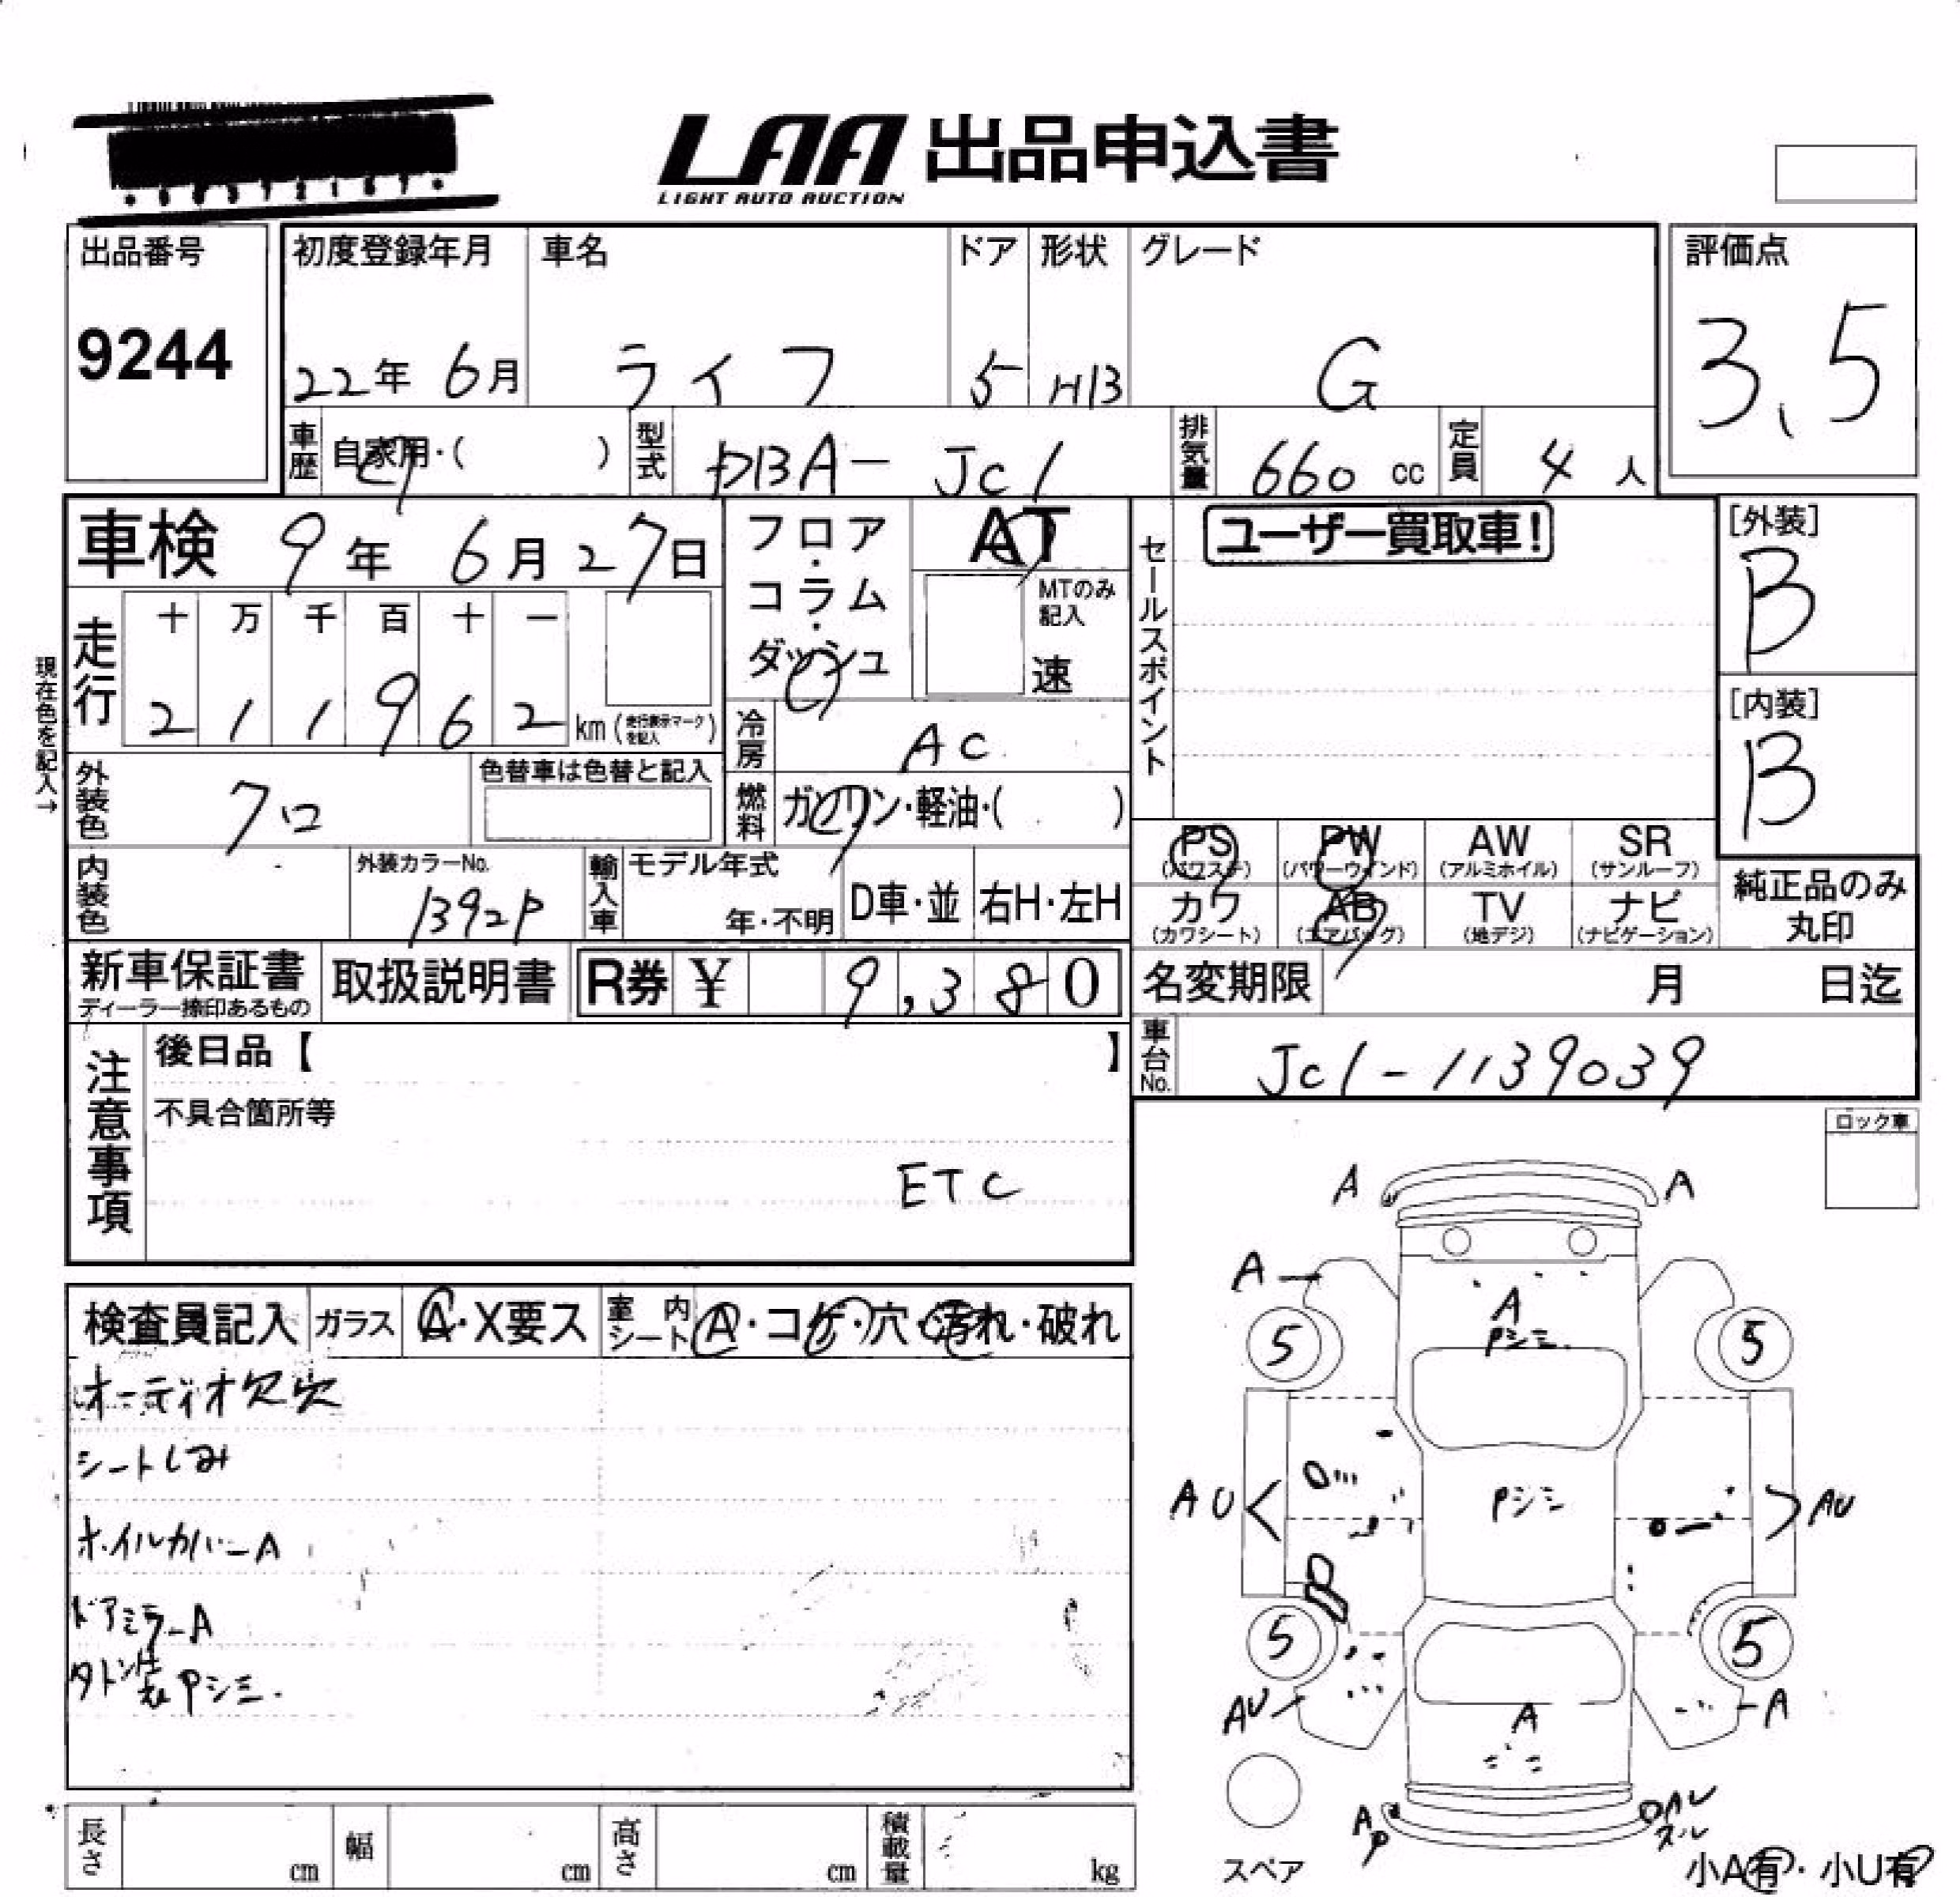 LAA 出品申込書
LIGHT AUTO AUCTION
出品番号
9244
初度登録年月
22年 6月
車名
ライフ
ドア
5
形状
HB
グレード
G
評価点
3.5
車歴
自家用・( )
型式
DBA-JC1
排気量
660 cc
定員
4 人
車検 9年 6月 27日
フロア・コラム・ダッシュ
AT
MTのみ記入
速
セールスポイント
ユーザー買取車!
[外装]
B
[内装]
B
現在色を記入→
走行
十 万 千 百 十 一
2 1 1 9 6 2 km (走行表示マークを記入)
冷房
AC
外装色
クロ
色替車は色替と記入
燃料
ガソリン・軽油・( )
PS (パワステ)
PW (パワーウインド)
AW (アルミホイル)
SR (サンルーフ)
カワ (カワシート)
AB (エアバッグ)
TV (地デジ)
ナビ (ナビゲーション)
純正品のみ丸印
内装色
外装カラーNo.
B92P
輸入車
モデル年式
年・不明
D車・並
右H・左H
新車保証書
ディーラー捺印あるもの
取扱説明書
R券 ¥ 9,380
名変期限 月 日迄
車台No.
JC1-1139039
注意事項
後日品【 】
不具合箇所等
ETC
ロック車
検査員記入
ガラス
A・X要ス
室内シート
A・コゲ・穴・汚れ・破れ
オーディオ欠穴
シートしみ
ホイルカバーA
ドアミラーA
外装Pシミ.
A A
A
A
Pシミ.
5 5
AU
Pシミ
AU
5 5
AU
A
A
A
スペア
小A有・小U有
長さ cm
幅 cm
高さ cm
積載量 kg